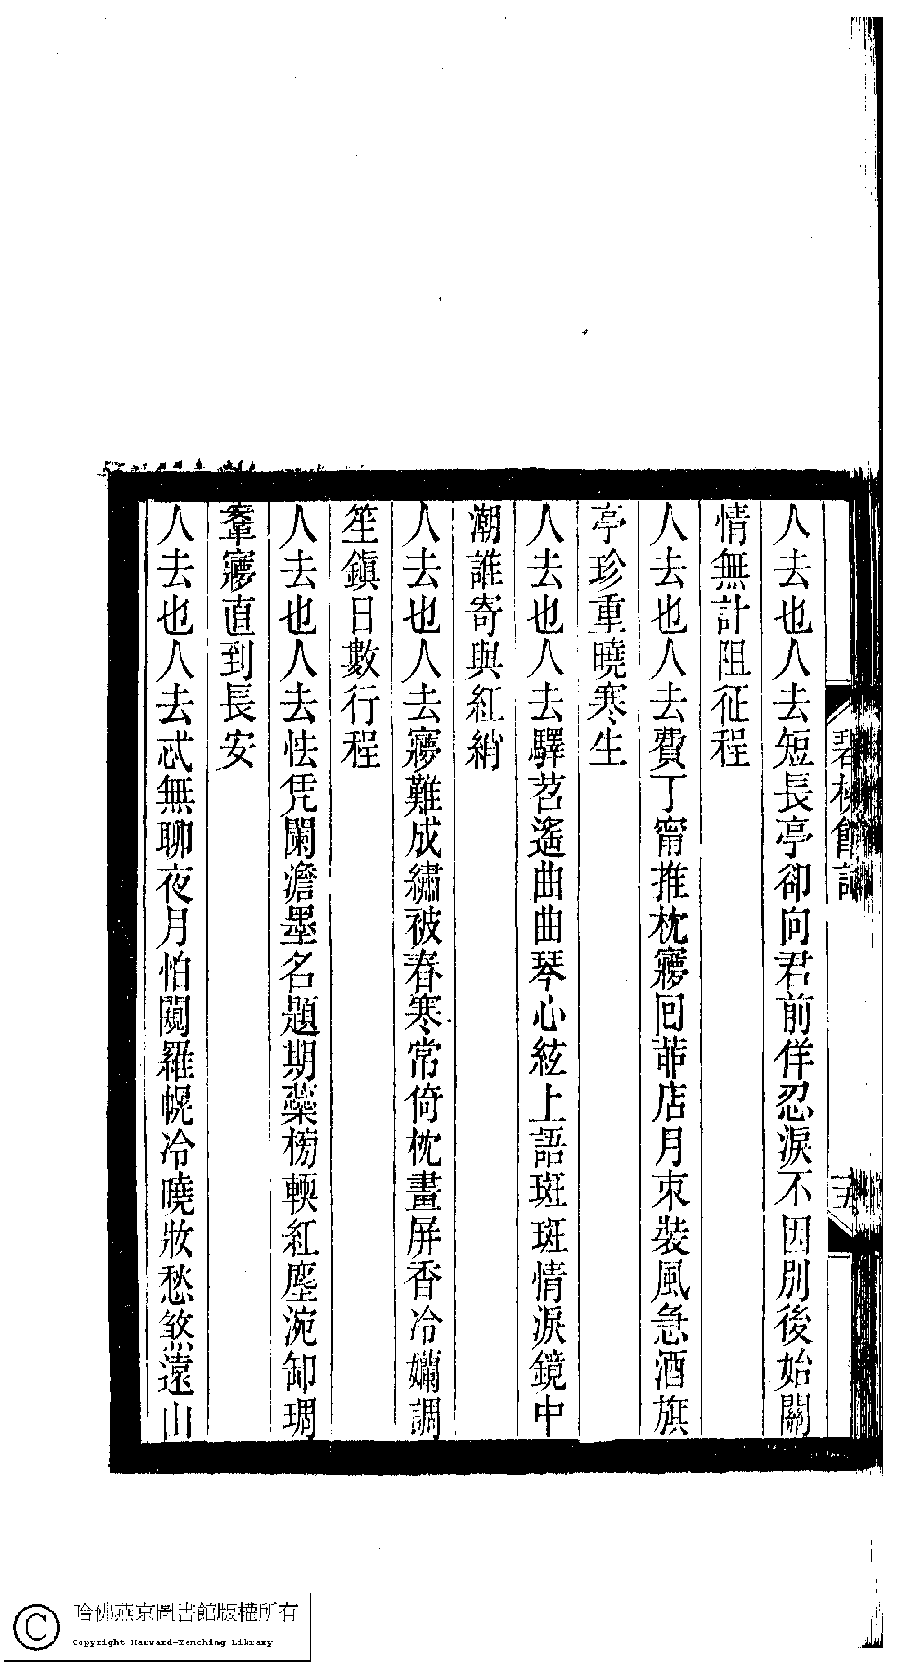 人去也人去短長亭卻向君前佯忍淚不因別後始關
情無計阻征程
人去也人去費丁甯推枕寱回茆店月束裝風急酒旗
亭珍重曉寒生
人去也人去驛苕遙曲曲琴心絃上語斑斑情淚鏡中
潮誰寄與紅綃
人去也人去寱難成繡被春寒常倚枕畫屏香冷嬾調
笙鎮日數行程
人去也人去怯凭闌澹墨名題期蘂榜輭紅塵涴卸琱
鞌寱直到長安
人去也人去忒無聊夜月怕闚羅幌冷曉妝愁煞遠山
哈佛燕京圖書館版權所有
Copyright Harvard-Yenching Library